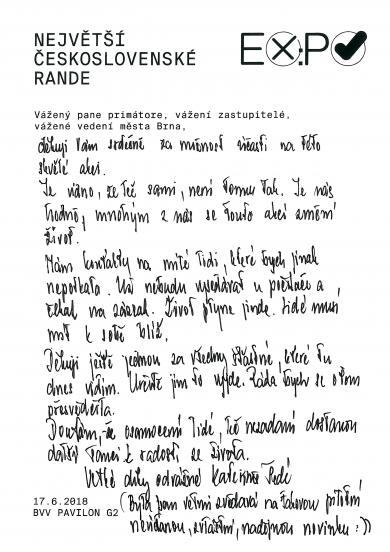 NEJVĚTŠÍ
ČESKOSLOVENSKÉ
RANDE
EX:PO
Vážený pane primátore, vážení zastupitelé,
vážené vedení města Brna,
děkuji Vám srdečně za možnost účasti na této
skvělé akci.
Je vidno, že též sami, není tomu tak. Je nás
hodně, mnohým z nás se touto akcí změní
život.
Mám kontakty na milé lidi, které bych jinak
nepotkala. Už nebudu vysedávat u počítače a
čekat na zázrak. Život plyne jinde. Lidé musí
mít k sobě blíž.
Děkuji ještě jednou za všechny šťastné, které tu
dnes vidím. Určitě jim to vyjde. Ráda bych se o tom
přesvědčila.
Doufám, že osamocení lidé, též nezadaní dostanou
další šanci k radosti ze života.
Velké díky odvážné
17.6.2018
BVV PAVILON G2
(Byla jsem velmi zvědavá na takovou
nevídanou, zvláštní, nadějnou novinku :))